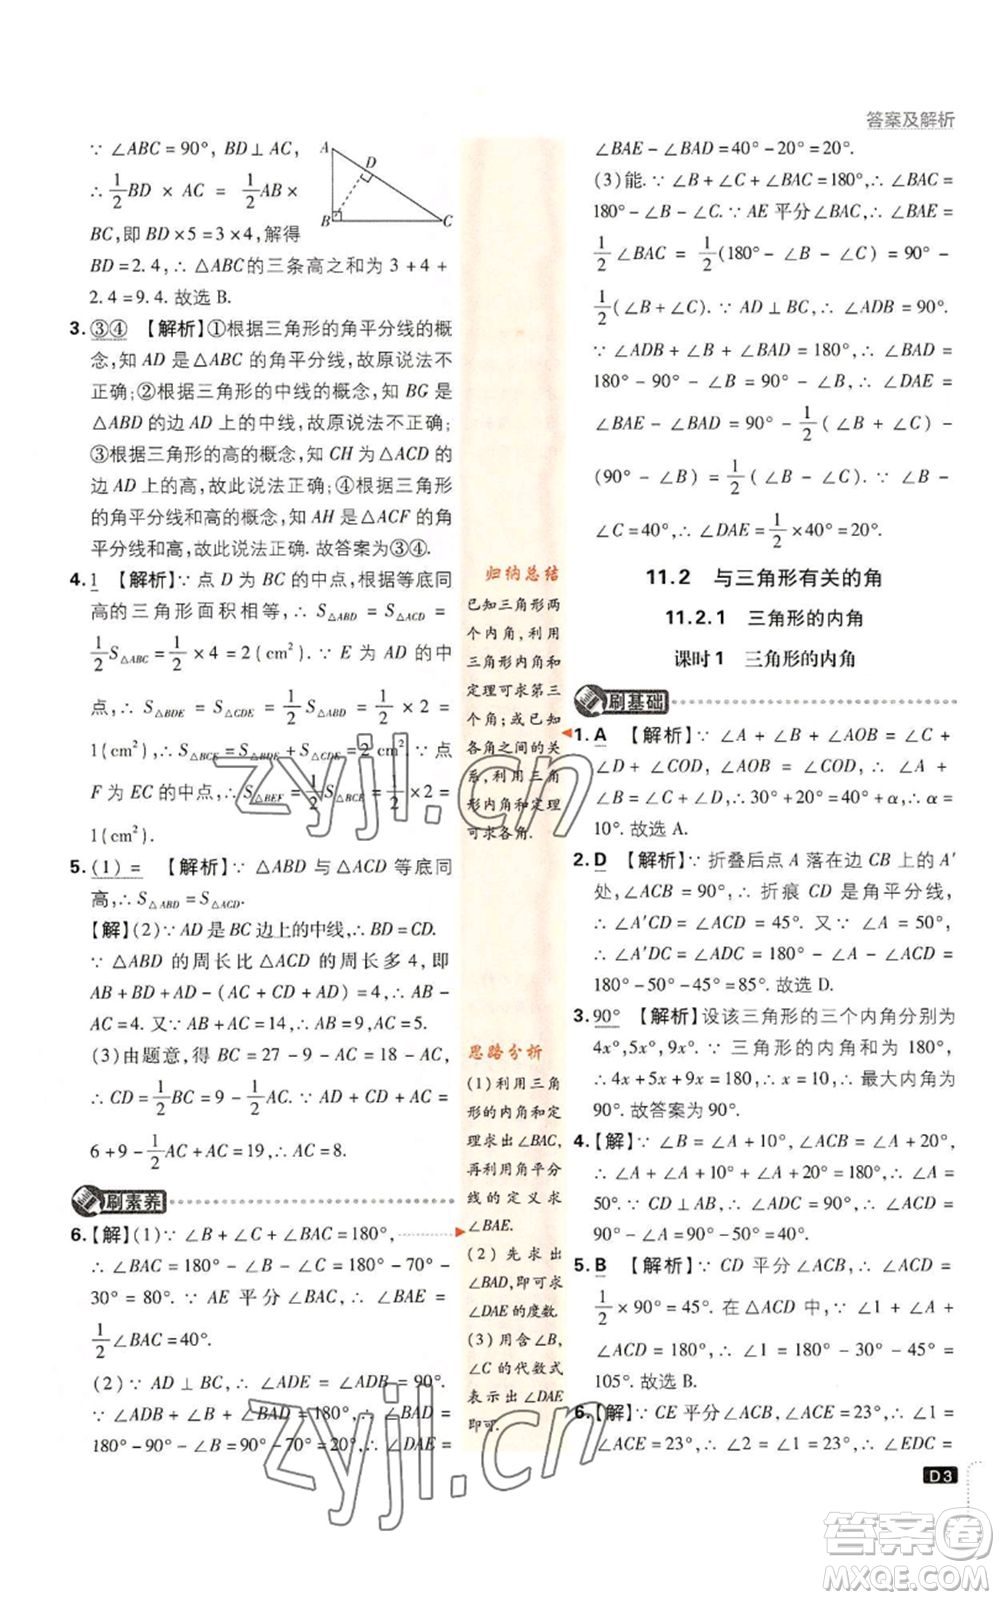 答案及解析
∵ ∠ABC=90°, BD⊥AC,
∴ 1/2 BD × AC = 1/2 AB ×
BC,即 BD×5=3×4,解得
BD=2.4,∴ △ABC的三条高之和为 3+4+
2.4=9.4. 故选 B.
A
D
B
C
3. ③④ 【解析】①根据三角形的角平分线的概
念,知 AD 是△ABC 的角平分线,故原说法不
正确;②根据三角形的中线的概念,知 BG 是
△ABD 的边 AD 上的中线,故原说法不正确;
③根据三角形的高的概念,知 CH 为△ACD 的
边 AD 上的高,故此说法正确;④根据三角形
的角平分线和高的概念,知 AH 是△ACF 的角
平分线和高,故此说法正确. 故答案为③④.
4. 1 【解析】∵ 点 D 为 BC 的中点,根据等底同
高的三角形面积相等,∴ S△ABD = S△ACD =
1/2 S△ABC = 1/2 ×4 = 2(cm²). ∵ E 为 AD 的中
点,∴ S△BDE = S△CDE = 1/2 S△ABD = 1/2 ×2 =
1(cm²),∴ S△BCE = S△BDE + S△CDE = 2(cm²). ∵ 点
F 为 EC 的中点,∴ S△BEF = 1/2 S△BCE = 1/2 ×2 =
1(cm²).
5. (1) = 【解析】∵ △ABD 与△ACD 等底同
高,∴ S△ABD = S△ACD.
【解】(2)∵ AD 是 BC 边上的中线,∴ BD=CD.
∵ △ABD 的周长比△ACD 的周长多 4,即
AB+AD+BD-(AC+AD+CD)=4,∴ AB-
AC=4. 又∵ AB+AC=14,∴ AB=9,AC=5.
(3)由题意,得 BC=27-9-AC=18-AC,
∴ CD = 1/2 BC = 9 - 1/2 AC,∴ AC+CD=
6+9- 1/2 AC+AC=19,∴ AC=8.
刷素养
6. 【解】(1)∵ ∠B+∠C+∠BAC=180°,
∴ ∠BAC=180°-∠B-∠C=180°-70°-
30°=80°. ∵ AE 平分∠BAC,∴ ∠BAE=
1/2 ∠BAC=40°.
(2)∵ AD⊥BC,∴ ∠ADE=∠ADB=90°.
∵ ∠ADB+∠B+∠BAD=180°,∴ ∠BAD=
180°-90°-∠B=90°-70°=20°,∴ ∠DAE=
归纳总结
已知三角形两
个内角,利用
三角形内角和
定理可求第三
个角;或已知
各角之间的关
系,利用三角
形内角和定理
可求各角.
思路分析
(1)利用三角
形的内角和定
理求出∠BAC,
再利用角平分
线的定义求
∠BAE.
(2)先求出
∠BAD,即可求
∠DAE 的度数.
(3)用含∠B,
∠C 的代数式
表示出∠DAE
即可.
∠BAE-∠BAD=40°-20°=20°.
(3)能. ∵ ∠B+∠C+∠BAC=180°,∴ ∠BAC=
180°-∠B-∠C. ∵ AE 平分∠BAC,∴ ∠BAE=
1/2 ∠BAC = 1/2 (180°-∠B-∠C) = 90° -
1/2 (∠B+∠C). ∵ AD⊥BC,∴ ∠ADB=90°.
∵ ∠ADB+∠B+∠BAD=180°,∴ ∠BAD=
180°-90°-∠B=90°-∠B,∴ ∠DAE=
∠BAE-∠BAD=90°- 1/2 (∠B+∠C)-
(90°-∠B)= 1/2 (∠B-∠C). ∵ ∠B-
∠C=40°,∴ ∠DAE= 1/2 ×40°=20°.
11.2 与三角形有关的角
11.2.1 三角形的内角
课时1 三角形的内角
刷基础
1. A 【解析】∵ ∠A+∠B+∠AOB=∠C+
∠D+∠COD,∠AOB=∠COD,∴ ∠A+
∠B=∠C+∠D,∴ 30°+20°=40°+α,∴ α=
10°. 故选 A.
2. D 【解析】∵ 折叠后点 A 落在边 CB 上的 A′
处,∠ACB=90°,∴ 折痕 CD 是角平分线,
∴ ∠A′CD=∠ACD=45°. 又∵ ∠A=50°,
∴ ∠A′DC=∠ADC=180°-∠A-∠ACD=
180°-50°-45°=85°. 故选 D.
3. 90° 【解析】设该三角形的三个内角分别为
4x°,5x°,9x°. ∵ 三角形的内角和为 180°,
∴ 4x+5x+9x=180,∴ x=10,∴ 最大内角为
90°. 故答案为 90°.
4. 【解】∵ ∠B=∠A+10°,∠ACB=∠A+20°,
∴ ∠A+∠A+10°+∠A+20°=180°,∴ ∠A=
50°. ∵ CD⊥AB,∴ ∠ADC=90°,∴ ∠ACD=
90°-∠A=90°-50°=40°.
5. B 【解析】∵ CD 平分∠ACB,∴ ∠ACD=
1/2 ×90°=45°. 在△ACD 中,∵ ∠1+∠A+
∠ACD=180°,∴ ∠1=180°-30°-45°=
105°. 故选 B.
6. 【解】∵ CE 平分∠ACB,∠ACE=23°,∴ ∠1=
∠ACE=23°,∴ ∠2=∠1=23°,∴ ∠EDC=
D3
zyjl.cn
zyjl.cn
答案圈
MXQE.COM